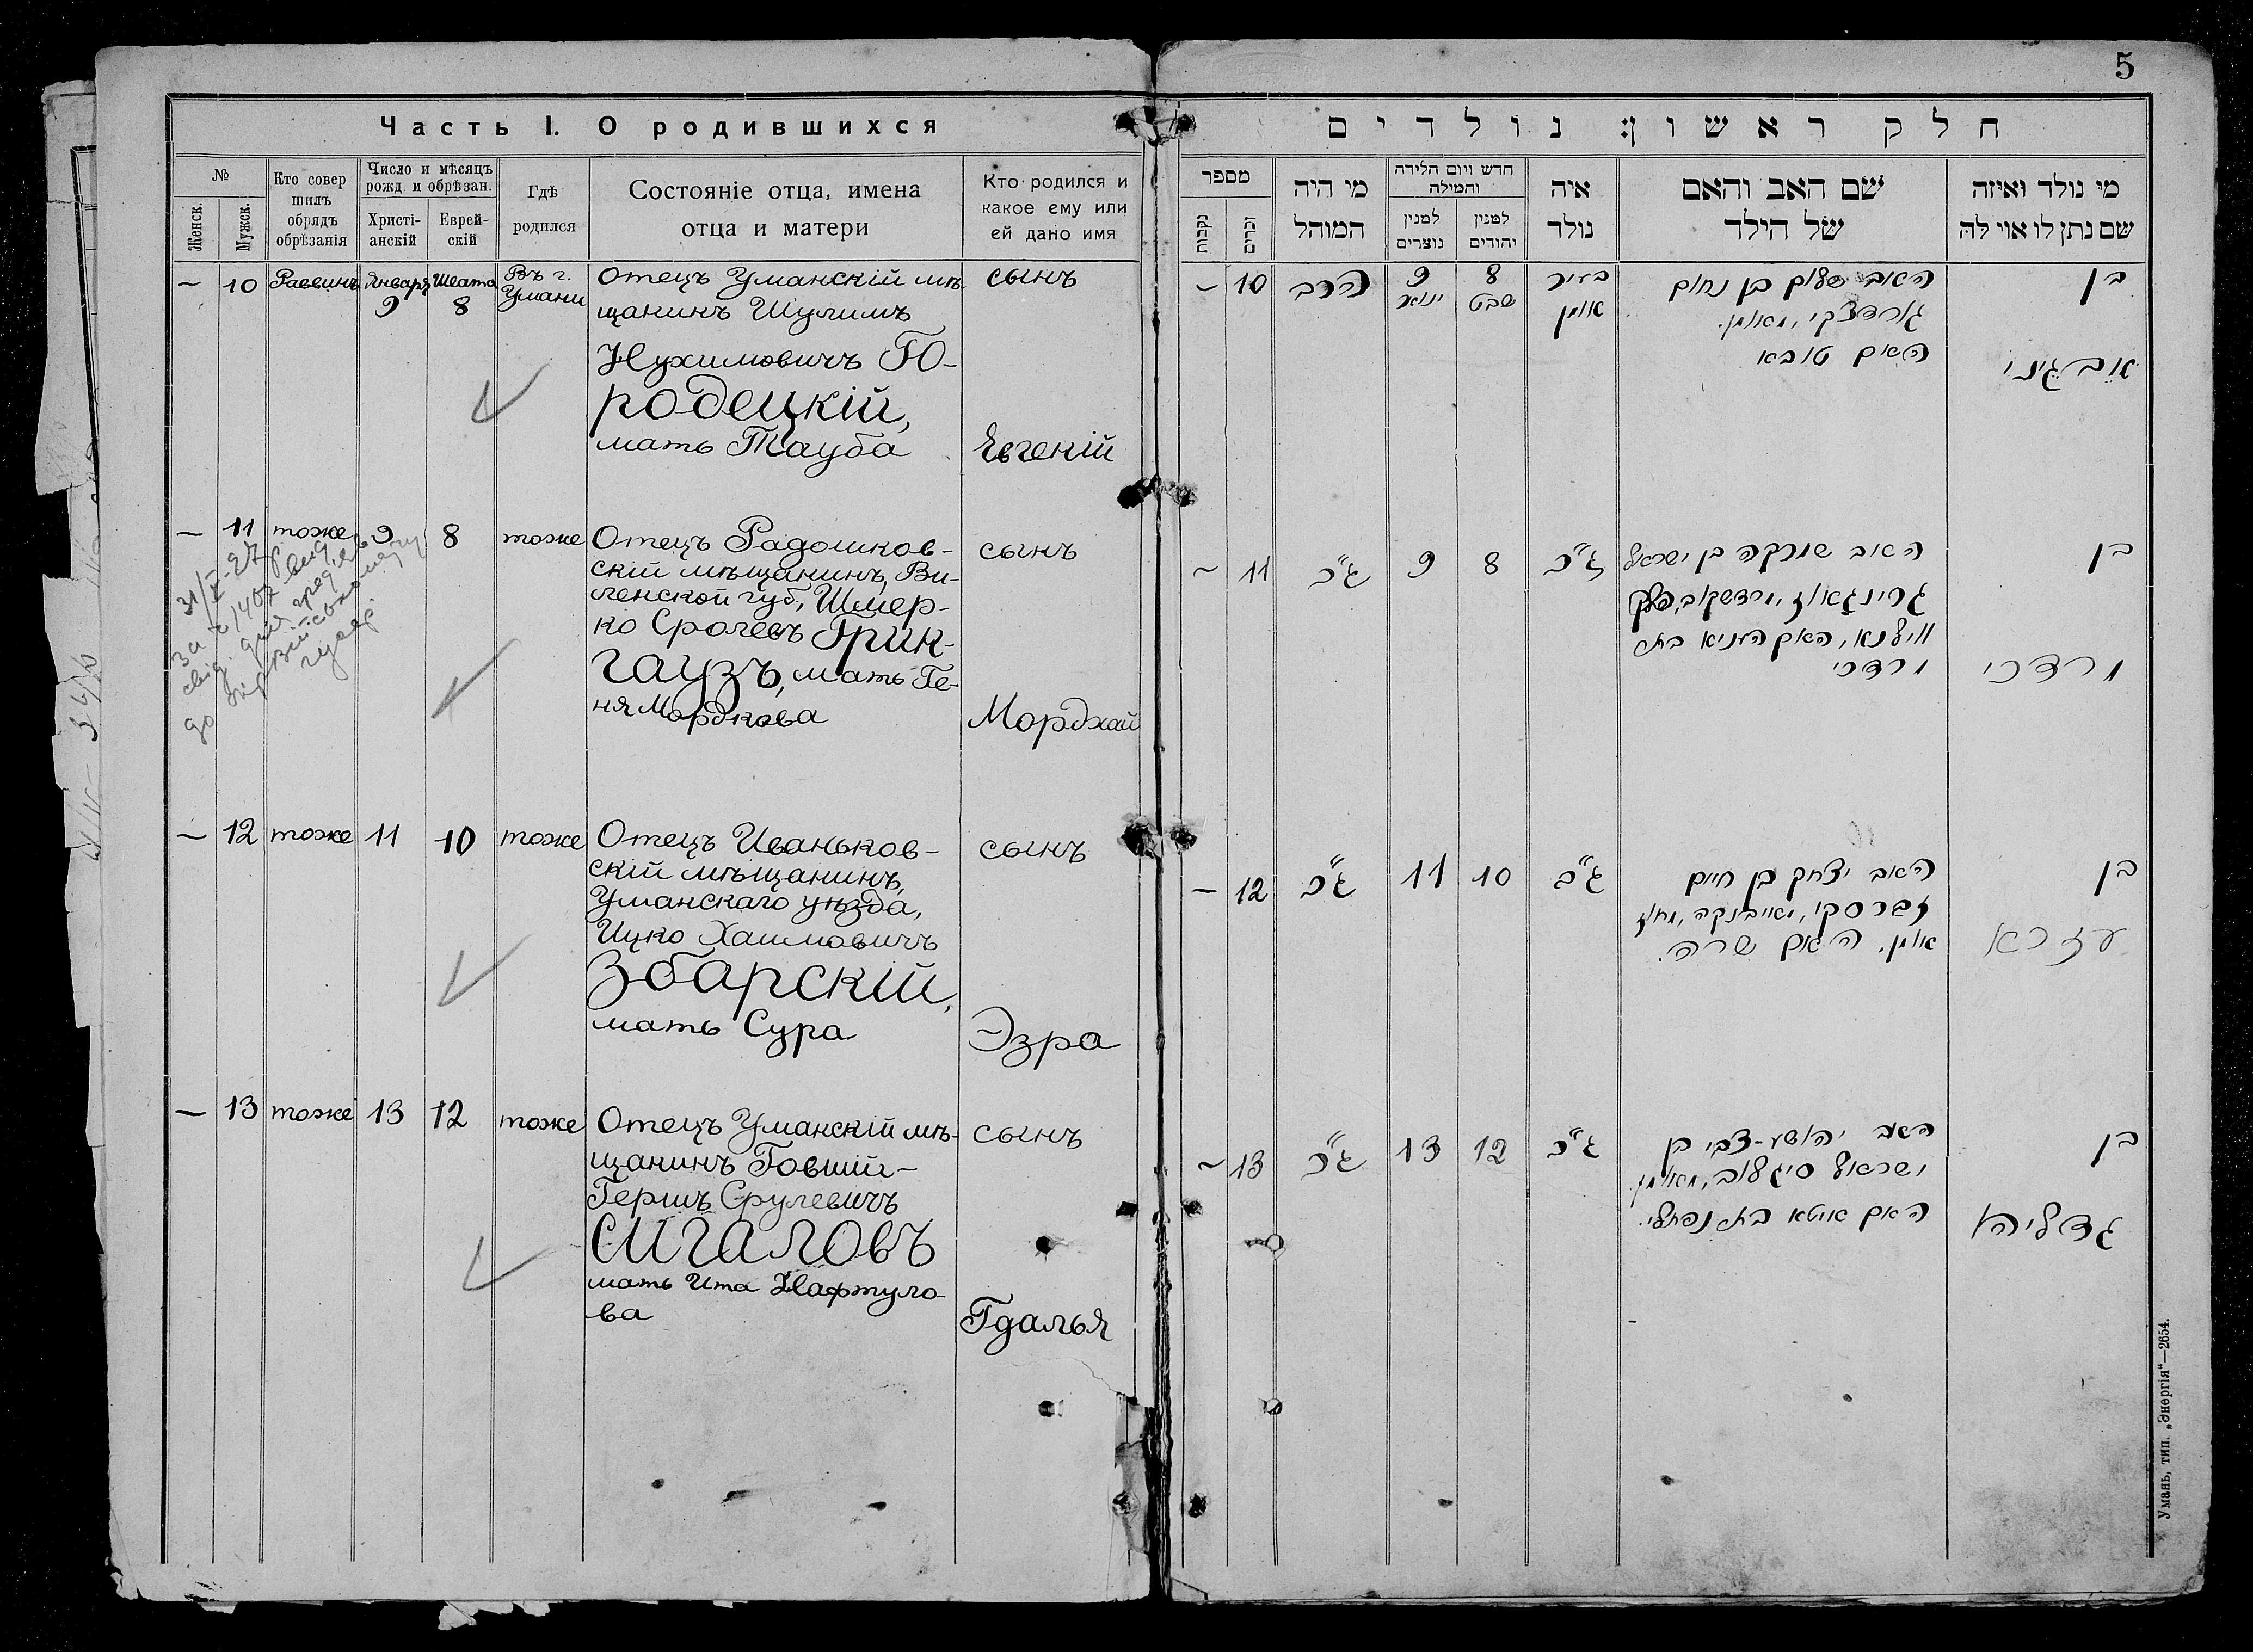 5
Часть I. О родившихся
№
Женск.
Мужск.
Кто совер
шилъ
обрядъ
обрѣзанія
Число и мѣсяцъ
рожд. и обрѣзан.
Христі-
анскій
Еврей-
скій
Гдѣ
родился
Состояніе отца, имена
отца и матери
Кто родился и
какое ему или
ей дано имя
— 10 Раввинъ Января 9 Швата 8 Въ г. Умани
Отецъ Уманскій мѣ-
щанинъ Шулимъ
Нухимовичъ ГО-
родецкій,
мать Тауба
сынъ
Евгеній
— 11 тоже 9 8 тоже
Отецъ Радошков-
скій мѣщанинъ, Ви-
ленской губ., Шмер-
ко Сролевъ Грин-
гаузъ, мать Ге-
ня Мордкова
сынъ
Мордхай
— 12 тоже 11 10 тоже
Отецъ Иваньков-
скій мѣщанинъ,
Уманскаго уѣзда,
Ицко Хаимовичъ
Збарскій,
мать Сура
сынъ
Эзра
— 13 тоже 13 12 тоже
Отецъ Уманскій мѣ-
щанинъ Говшій-
Гершъ Срулевичъ
Сигаловъ
мать Ита Нафтуло-
ва
сынъ
Гдалья
חלק ראשון: נולדים
מספר
נקבות
זכרים
מי היה
המוהל
חדש ויום הלידה
והמילה
למנין
נוצרים
למנין
יהודים
איה
נולד
שם האב והאם
של הילד
מי נולד ואיזה
שם נתן לו או לה
— 10 הרב 9 ינואר 8 שבט בעיר אומן
האב שלום בן נחום
גורדצקי, מאומן.
האם טובא
בן
אובגיני
— 11 ג״כ 9 8 ג״כ
האב שמרקה בן ישראל
גרינגאוז, מרדשקוב, פלך
ווילנא, האם העניא בת
מרדכי
בן
מרדכי
— 12 ג״כ 11 10 ג״כ
האב יצחק בן חיים
זברסקי, מאיבנקה, מחוז
אומן. האם שרה.
בן
עזרא
— 13 ג״כ 13 12 ג״כ
האב יהושע-צבי בן
ישראל סיגלוב, מאומן.
האם איטא בת נפתלי.
בן
גדליהו
Умань, тип. „Энергія“—2654.